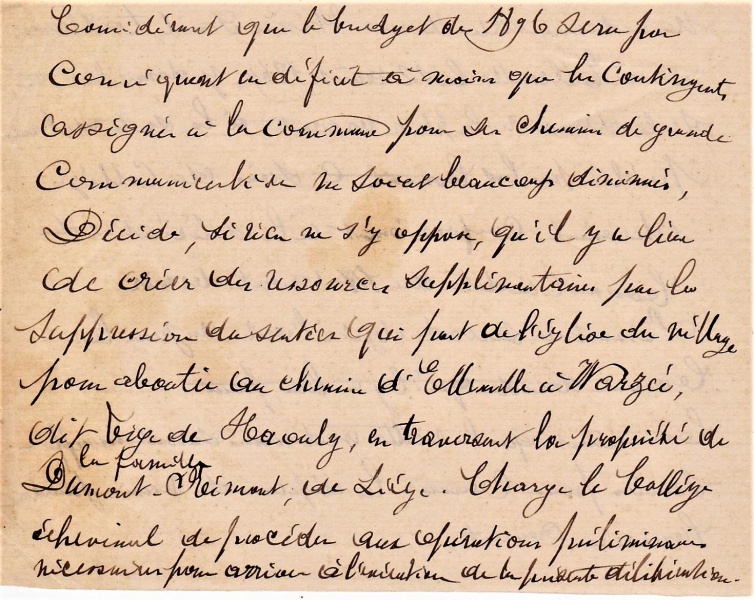 Considérant que le budget de 1896 sera par
Conséquent en déficit à moins que les Contingents
assignés à la commune pour ses chemins de grande
Communication ne soient beaucoup diminués,
Décide, si rien ne s'y oppose, qu'il y a lieu
de créer des ressources supplémentaires par la
suppression du sentier qui part de l'église du village
pour aboutir au chemin d'Ellemelle à Warzée,
dit de Haouly, en traversant la propriété de
la famille
Dumont-Rémont, de Liége. Charge le Collège
échevinal de procéder aux opérations préliminaires
nécessaires pour arriver à l'exécution de la présente délibération.